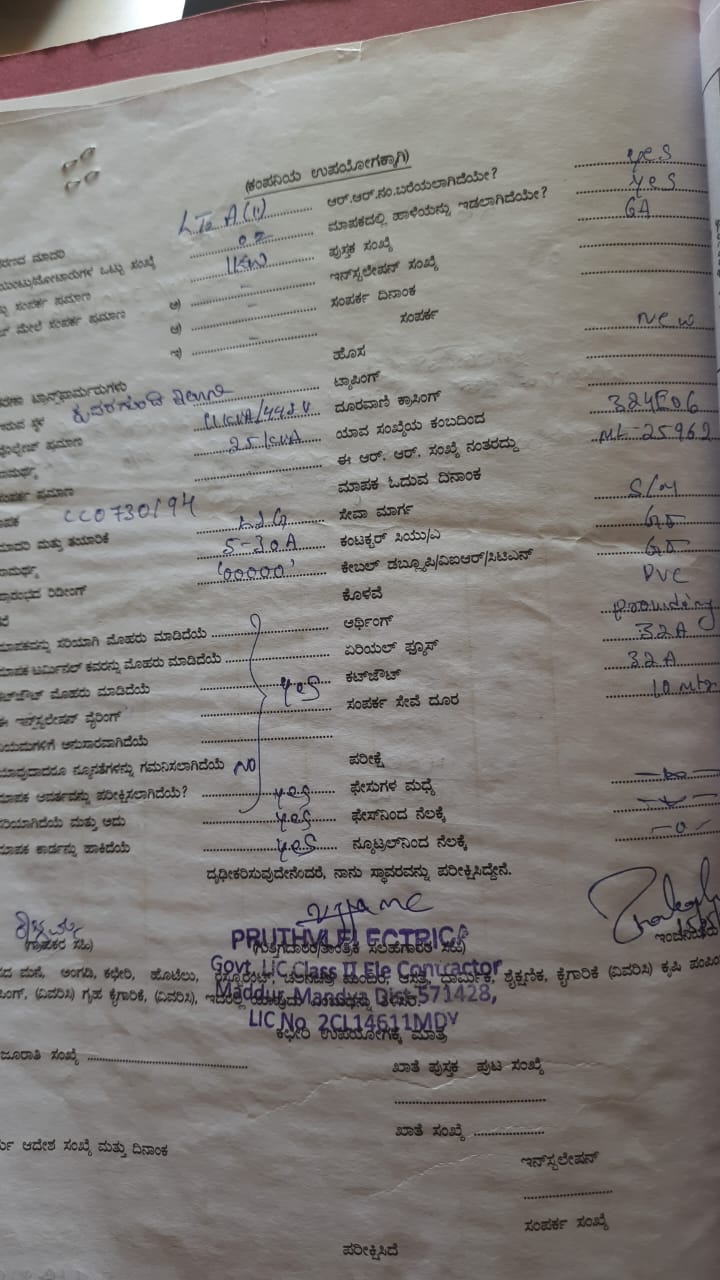 (ಕಂಪನಿಯ ಉಪಯೋಗಕ್ಕಾಗಿ)
LT2 A(1) ಆರ್.ಆರ್.ನಂ.ಬರೆಯಲಾಗಿದೆಯೇ? yes
02 ಮಾಪಕದಲ್ಲಿ ಹಾಳೆಯನ್ನು ಇಡಲಾಗಿದೆಯೇ? yes
ಒಟ್ಟು ಸಂಖ್ಯೆ 1KW ಪುಸ್ತಕ ಸಂಖ್ಯೆ 6A
ಸಂಪರ್ಕ ಪ್ರಮಾಣ ಅ) - ಇನ್‌ಸ್ಟಲೇಷನ್ ಸಂಖ್ಯೆ
ಮೇಲೆ ಸಂಪರ್ಕ ಪ್ರಮಾಣ ಆ) - ಸಂಪರ್ಕ ದಿನಾಂಕ
ಇ) - ಸಂಪರ್ಕ
ಹೊಸ new
ಟ್ರಾನ್ಸ್‌ಫಾರ್ಮರುಗಳು ಟ್ಯಾಪಿಂಗ್
ದೂರವಾಣಿ ಕ್ರಾಸಿಂಗ್
ಪ್ರಮಾಣ 25 KVA ಯಾವ ಸಂಖ್ಯೆಯ ಕಂಬದಿಂದ 324E06
ಈ ಆರ್. ಆರ್. ಸಂಖ್ಯೆ ನಂತರದ್ದು ML-25962
ಸಂಪರ್ಕ ಪ್ರಮಾಣ ಮಾಪಕ ಓದುವ ದಿನಾಂಕ
CC0730194 L&G ಸೇವಾ ಮಾರ್ಗ S/M
ಮತ್ತು ತಯಾರಿಕೆ 5-30A ಕಂಟಕ್ಟರ್ ಸಿಯು/ಎ
'00000' ಕೇಬಲ್ ಡಬ್ಲ್ಯೂಪಿ/ವಿಐಆರ್/ಸಿಟಿಎಸ್
ರೀಡಿಂಗ್ ಕೊಳವೆ PVC
ಮಾಪಕವನ್ನು ಸರಿಯಾಗಿ ಮೊಹರು ಮಾಡಿದೆಯೆ ಆರ್ಥಿಂಗ್
ಮಾಪಕ ಟರ್ಮಿನಲ್ ಕವರನ್ನು ಮೊಹರು ಮಾಡಿದೆಯೆ ಏರಿಯಲ್ ಫ್ಯೂಸ್ 32A
ಕಟ್‌ಔಟ್ ಮೊಹರು ಮಾಡಿದೆಯೆ yes ಕಟ್‌ಔಟ್ 32A
ಈ ಇನ್‌ಸ್ಟಲೇಷನ್ ವೈರಿಂಗ್ ಸಂಪರ್ಕ ಸೇವೆ ದೂರ 10 mtr
ನಿಯಮಗಳಿಗೆ ಅನುಸಾರವಾಗಿದೆಯೆ
ಯಾವುದಾದರೂ ನ್ಯೂನತೆಗಳನ್ನು ಗಮನಿಸಲಾಗಿದೆಯೆ NO ಪರೀಕ್ಷೆ
ಮಾಪಕ ಆವರ್ತವನ್ನು ಪರೀಕ್ಷಿಸಲಾಗಿದೆಯೆ? yes ಫೇಸುಗಳ ಮಧ್ಯೆ
ಸರಿಯಾಗಿದೆಯೆ ಮತ್ತು ಅದು yes ಫೇಸ್‌ನಿಂದ ನೆಲಕ್ಕೆ
ಮಾಪಕ ಕಾರ್ಡನ್ನು ಹಾಕಿದೆಯೆ yes ನ್ಯೂಟ್ರಲ್‌ನಿಂದ ನೆಲಕ್ಕೆ -0-
ದೃಢೀಕರಿಸುವುದೇನೆಂದರೆ, ನಾನು ಸ್ಥಾವರವನ್ನು ಪರೀಕ್ಷಿಸಿದ್ದೇನೆ.
(ಗ್ರಾಹಕರ ಸಹಿ) (ಗುತ್ತಿಗೆದಾರ/ತಾಂತ್ರಿಕ ಸಲಹೆಗಾರರ ಸಹಿ)
PRUTHVI ELECTRICA
Govt. LIC Class II Ele Contractor
Maddur, Mandya Dist-571428,
LIC No. 2CL14611MDY
ಮನೆ, ಅಂಗಡಿ, ಕಛೇರಿ, ಹೊಟೇಲು, ಶೈಕ್ಷಣಿಕ, ಕೈಗಾರಿಕೆ (ವಿವರಿಸಿ) ಕೃಷಿ
(ವಿವರಿಸಿ) ಗೃಹ ಕೈಗಾರಿಕೆ, (ವಿವರಿಸಿ),
ಕಛೇರಿ ಉಪಯೋಗಕ್ಕೆ ಮಾತ್ರ
ಸಂಖ್ಯೆ ಖಾತೆ ಪುಸ್ತಕ ಪುಟ ಸಂಖ್ಯೆ
ಖಾತೆ ಸಂಖ್ಯೆ
ಆದೇಶ ಸಂಖ್ಯೆ ಮತ್ತು ದಿನಾಂಕ
ಇನ್‌ಸ್ಟಲೇಷನ್
ಸಂಪರ್ಕ ಸಂಖ್ಯೆ
ಪರೀಕ್ಷಿಸಿದೆ